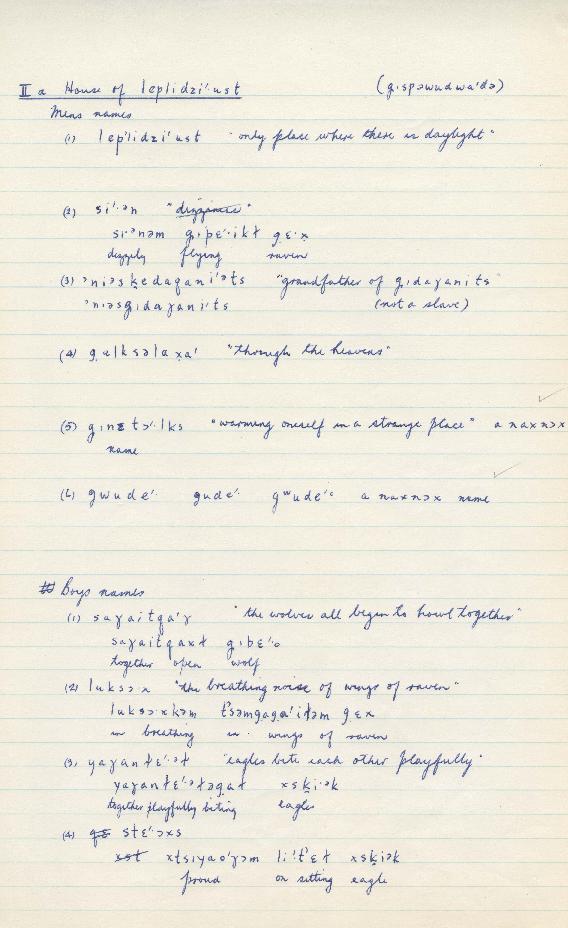 II a House of leplidzi'·ust (gıspəwudwa'də)
Mens names
(1) lep'lidzi'ust "only place where there is daylight"
(2) si'·ən "dizziness"
si·'ənəm gıpɛ'·ikɬ gɛ·x
dizzily flying raven
(3) ʼniəsḳedaqani'əts "grandfather of gıdaɣanits"
ʼniəsgıdaɣani'ts (not a slave)
(4) gulksəlaxa' "through the heavens"
(5) gınɛtɔ'·lks "warming oneself in a strange place" a naxnɔx
name
(6) gwude'· gude'· gʷude'· a naxnɔx name
Boys names
(1) saɣaitqa'ɣ "the wolves all begin to howl together"
saɣaitqaxɬ gıbɛ'·o
together open wolf
(2) luksɔ·x "the breathing noise of wings of raven"
luksɔ·xkəm t'səmgaga'iɬəm gɛx
in breathing in· wings of raven
(3) yaɣanɬɛ'·əɬ "eagles bite each other playfully"
yaɣanɬɛ'·ɬəgaɬ xsḳi·ək
together playfully biting eagles
(4) qɛ stɛ'·ɔxs
xst xtsıyao'ɣəm li·'t'ɛɬ xsḳiək
proud on sitting eagle